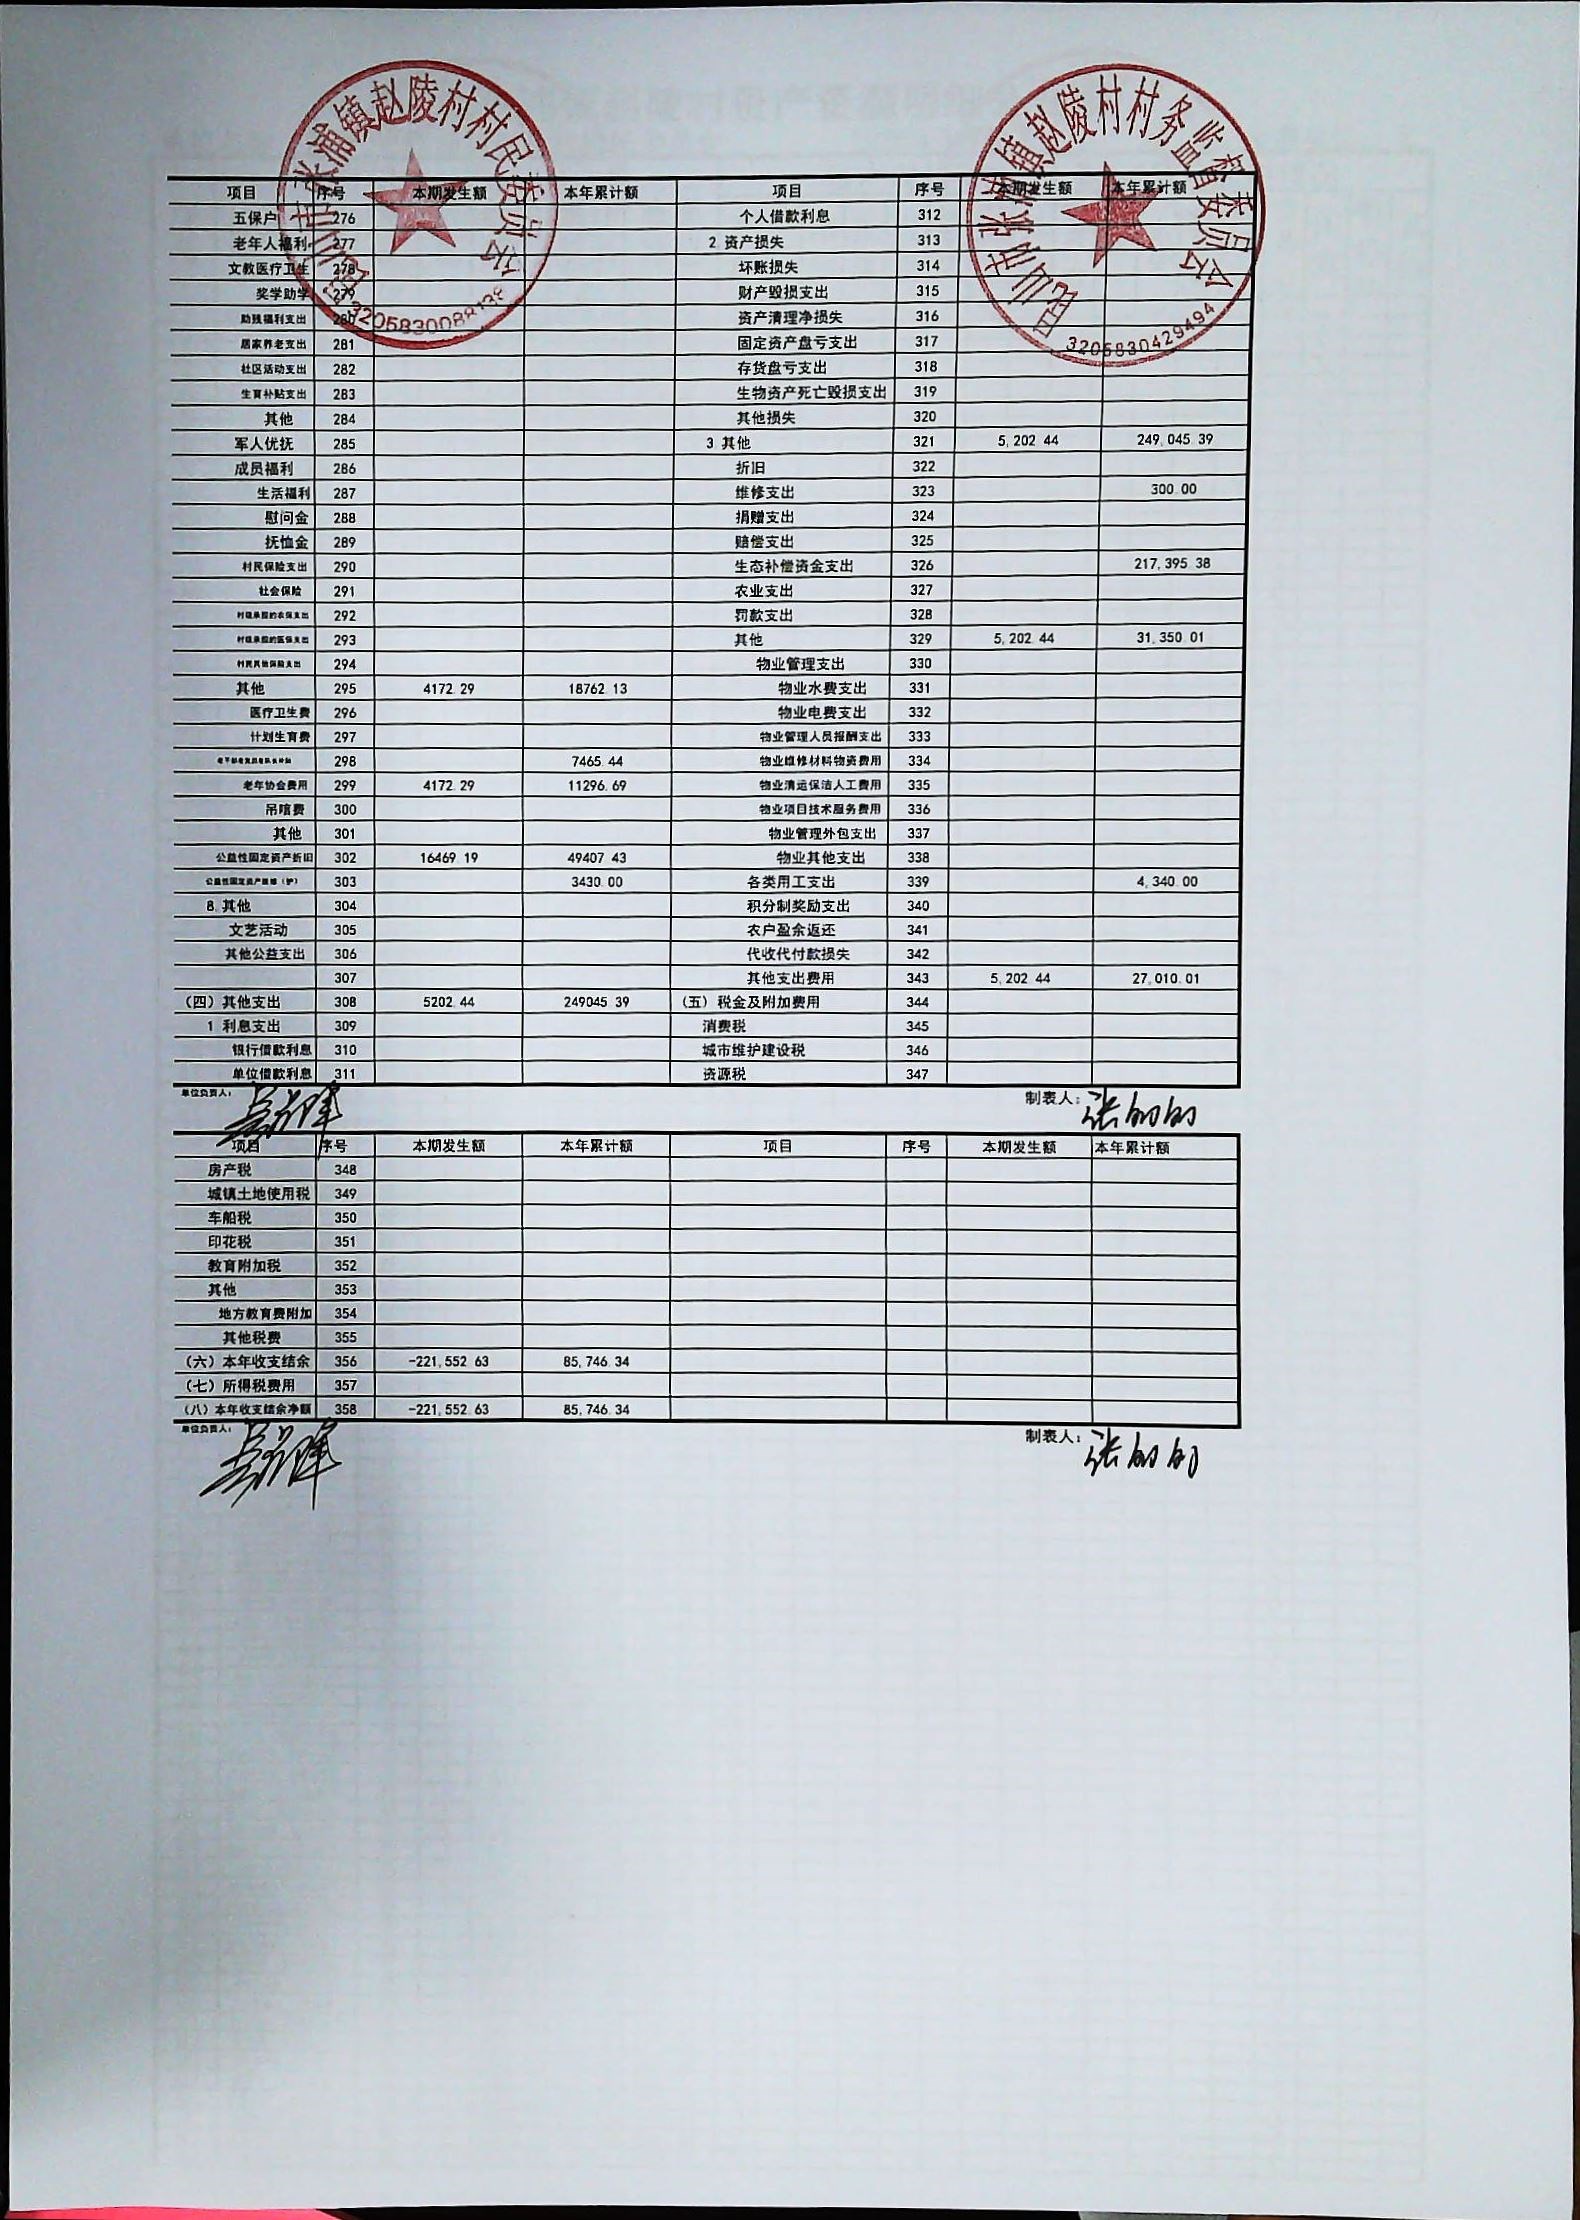 昆山市张浦镇赵陵村村民委员会
昆山市张浦镇赵陵村村务监督委员会
3205830429494
项目 序号 本期发生额 本年累计额 项目 序号 本期发生额 本年累计额
五保户 276 个人借款利息 312
老年人福利 277 2.资产损失 313
文教医疗卫生 278 坏账损失 314
奖学助学 279 财产毁损支出 315
助残福利支出 280 资产清理净损失 316
居家养老支出 281 固定资产盘亏支出 317
社区活动支出 282 存货盘亏支出 318
生育补贴支出 283 生物资产死亡毁损支出 319
其他 284 其他损失 320
军人优抚 285 3.其他 321 5,202.44 249,045.39
成员福利 286 折旧 322
生活福利 287 维修支出 323 300.00
慰问金 288 捐赠支出 324
抚恤金 289 赔偿支出 325
村民保险支出 290 生态补偿资金支出 326 217,395.38
社会保险 291 农业支出 327
村级承担的农保支出 292 罚款支出 328
村级承担的医保支出 293 其他 329 5,202.44 31,350.01
村民其他保险支出 294 物业管理支出 330
其他 295 4172.29 18762.13 物业水费支出 331
医疗卫生费 296 物业电费支出 332
计划生育费 297 物业管理人员报酬支出 333
298 7465.44 物业维修材料物资费用 334
老年协会费用 299 4172.29 11296.69 物业清运保洁人工费用 335
吊唁费 300 物业项目技术服务费用 336
其他 301 物业管理外包支出 337
公益性固定资产折旧 302 16469.19 49407.43 物业其他支出 338
公益性固定资产维修（护） 303 3430.00 各类用工支出 339 4,340.00
8.其他 304 积分制奖励支出 340
文艺活动 305 农户盈余返还 341
其他公益支出 306 代收代付款损失 342
307 其他支出费用 343 5,202.44 27,010.01
（四）其他支出 308 5202.44 249045.39 （五）税金及附加费用 344
1.利息支出 309 消费税 345
银行借款利息 310 城市维护建设税 346
单位借款利息 311 资源税 347
单位负责人： 制表人：
项目 序号 本期发生额 本年累计额 项目 序号 本期发生额 本年累计额
房产税 348
城镇土地使用税 349
车船税 350
印花税 351
教育附加税 352
其他 353
地方教育费附加 354
其他税费 355
（六）本年收支结余 356 -221,552.63 85,746.34
（七）所得税费用 357
（八）本年收支结余净额 358 -221,552.63 85,746.34
单位负责人： 制表人：